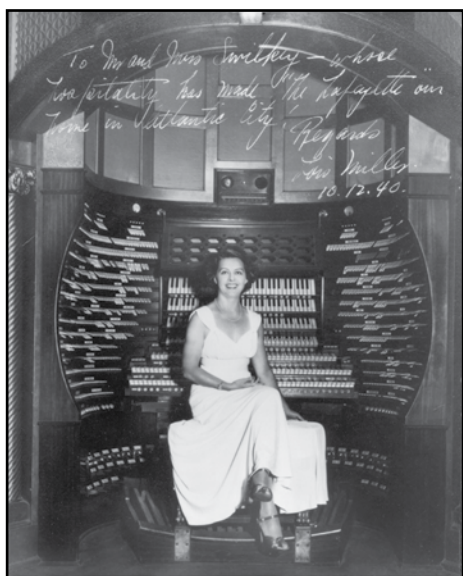 To Mr and Mrs — whose
hospitality has made "The Lafayette" our
home in Atlantic City!
Regards
Lois Miller.
10.12.40.